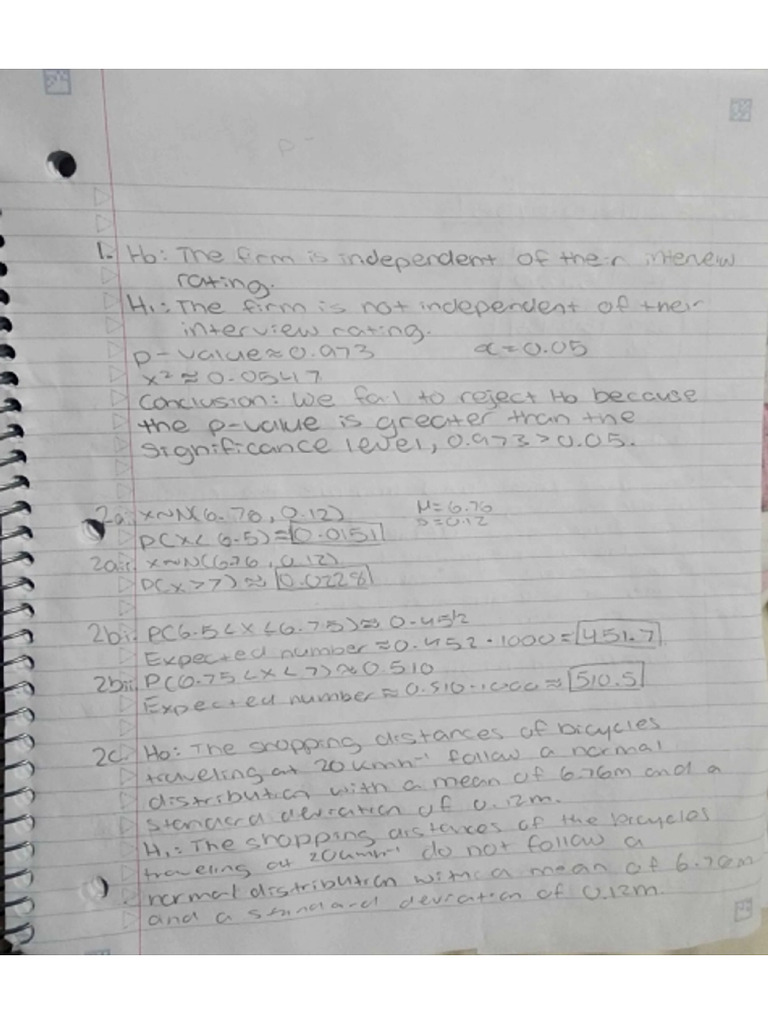 1. Ho: The firm is independent of their interview
rating.
H₁: The firm is not independent of their
interview rating.
p-value ≈ 0.973 α = 0.05
x² ≈ 0.0547
Conclusion: We fail to reject Ho because
the p-value is greater than the
significance level, 0.973 > 0.05.
2ai. X~N(6.76, 0.12) μ = 6.76
P(X < 6.5) = 0.0151 s = 0.12
2aii. X~N(6.76, 0.12)
P(X > 7) ≈ 0.0228
2bi. P(6.5 < X < 6.75) ≈ 0.452
Expected number ≈ 0.452 · 1000 = 451.7
2bii. P(6.75 < X < 7) ≈ 0.510
Expected number ≈ 0.510 · 1000 ≈ 510.5
2c. Ho: The shopping distances of bicycles
traveling at 20 kmh⁻¹ follow a normal
distribution with a mean of 6.76m and a
standard deviation of 0.12m.
H₁: The shopping distances of the bicycles
traveling at 20kmh⁻¹ do not follow a
normal distribution with a mean of 6.76m
and a standard deviation of 0.12m.